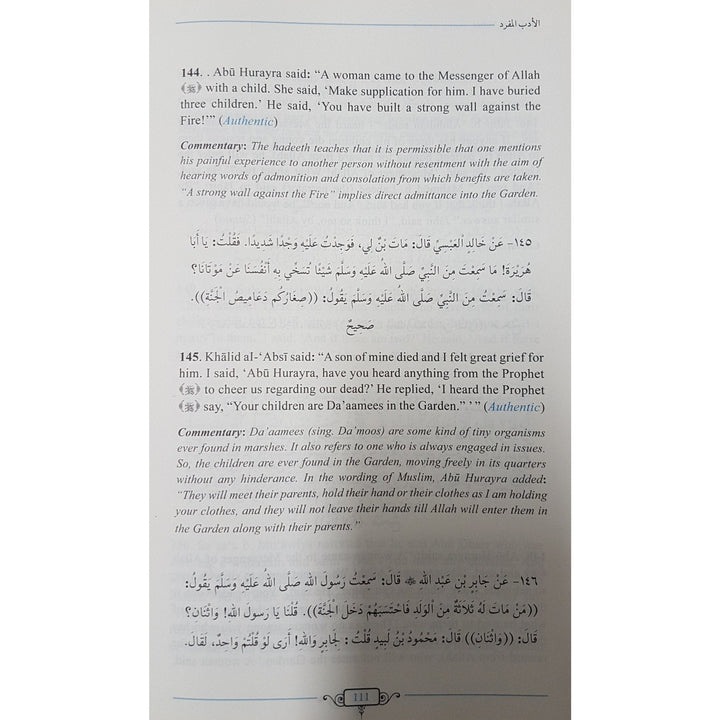 الأدب المفرد
144. . Abū Hurayra said: “A woman came to the Messenger of Allah
(ﷺ) with a child. She said, ‘Make supplication for him. I have buried
three children.’ He said, ‘You have built a strong wall against the
Fire!’” (Authentic)
Commentary: The hadeeth teaches that it is permissible that one mentions
his painful experience to another person without resentment with the aim of
hearing words of admonition and consolation from which benefits are taken.
“A strong wall against the Fire” implies direct admittance into the Garden.
١٤٥- عَنْ خَالِدِ الْعَبْسِيِّ قَالَ: مَاتَ بْنٌ لِي، فَوَجِدْتُ عَلَيْهِ وَجْدًا شَدِيدًا. فَقُلْتُ: يَا أَبَا
هُرَيْرَةَ! مَا سَمِعْتَ مِنَ النَّبِيِّ صَلَّى اللهُ عَلَيْهِ وَسَلَّمَ شَيْئًا تُسَخِّي بِهِ أَنْفُسَنَا عَنْ مَوْتَانَا؟
قَالَ: سَمِعْتُ مِنَ النَّبِيِّ صَلَّى اللهُ عَلَيْهِ وَسَلَّمَ يَقُولُ: ((صِغَارُكُم دَعَامِيصُ الْجَنَّةِ)).
صَحِيحٌ
145. Khālid al-‘Absī said: “A son of mine died and I felt great grief for
him. I said, ‘Abū Hurayra, have you heard anything from the Prophet
(ﷺ) to cheer us regarding our dead?’ He replied, ‘I heard the Prophet
(ﷺ) say, “Your children are Da’aamees in the Garden.” ’” (Authentic)
Commentary: Da’aamees (sing. Da’moos) are some kind of tiny organisms
ever found in marshes. It also refers to one who is always engaged in issues.
So, the children are ever found in the Garden, moving freely in its quarters
without any hinderance. In the wording of Muslim, Abū Hurayra added:
“They will meet their parents, hold their hand or their clothes as I am holding
your clothes, and they will not leave their hands till Allah will enter them in
the Garden along with their parents.”
١٤٦- عَنْ جَابِرِ بْنِ عَبْدِ اللهِ ﷺ قَالَ: سَمِعْتُ رَسُولَ اللهِ صَلَّى اللهُ عَلَيْهِ وَسَلَّمَ يَقُولُ:
((مَنْ مَاتَ لَهُ ثَلَاثَةٌ مِنَ الْوَلَدِ فَاحْتَسَبَهُمْ دَخَلَ الْجَنَّةَ)). قُلْنَا يَا رَسولَ اللهِ! وَاثْنَانِ؟
قَالَ: ((وَاثْنَانِ)) قَالَ: مَحْمُودُ بْنُ لَبِيدٍ قُلْتُ : لِجَابِرٍ وَاللهِ! أَرَى لَوْ قُلْتُمْ وَاحِدٌ، لَقَالَ.
111